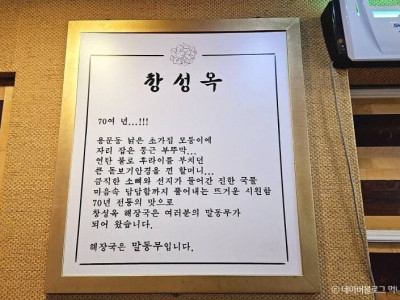 창성옥
70여 년...!!!
용문동 낡은 초가집 모퉁이에
자리 잡은 둥근 부뚜막...
연탄 불로 후라이를 부치던
큰 돋보기안경을 낀 할머니...
큼직한 소뼈와 선지가 들어간 진한 국물
마음속 답답함까지 풀어내는 뜨거운 시원함
70년 전통의 맛으로
창성옥 해장국은 여러분의 말동무가
되어 왔습니다.
해장국은 말동무입니다.
ⓒ 네이버블로그 먹